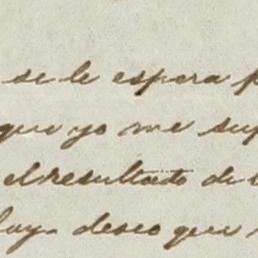 se le espera
que yo me sup
el resultado de
haya deseo que